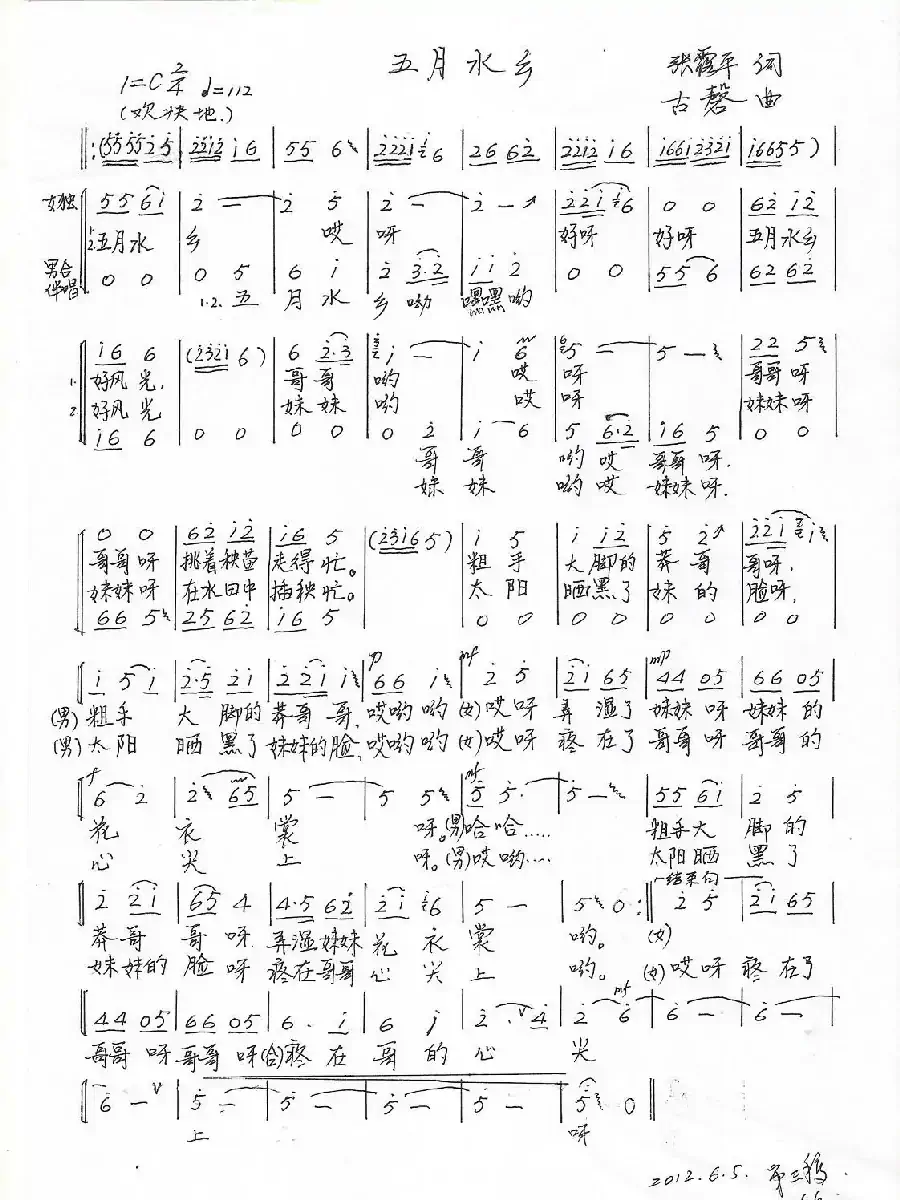 五月水乡
1=C 2/4 ♩=112
张霭平 词
(欢快地.)
古磬 曲
‖:(5555 25 | 2212 i6 | 55 6 | 2221 6 | 26 62 | 2212 i6 | i66i 2321 | i6655)
女独 55 6i | 2 – | 2 5 | 2 – | 2 – | 22i 6 | 0 0 | 62 i2
1.2.五月水 乡 哎 呀 好呀 好呀 五月水乡
男合伴唱 0 0 | 0 5 | 6 i | 2 3·2 | ii 2 | 0 0 | 55 6 | 62 62
1.2. 五 月 水 乡 呦 嘿嘿 哟
i6 6 | (232i 6) | 6 2·3 | i – | i 6 | 5 – | 5 – | 22 5
1. 好风光, 哥 哥 哟 哎 呀 哥哥 呀
2. 好风光 妹 妹 哟 哎 呀 妹妹 呀
i6 6 | 0 0 | 0 0 | 0 2 | i 6 | 5 6·2 | i6 5 | 0 0
哥 哥 哟 哎 哥哥 呀.
妹 妹 哟 哎 妹妹 呀.
0 0 | 62 i2 | i6 5 | (23i6 5) | i 5 | i i2 | 5 2 | 22i i
哥哥 呀 挑着秧苗 走得 忙。 粗 手 大 脚的 莽 哥 哥 呀,
妹妹 呀 在水田中 插秧 忙。 太 阳 晒 黑了 妹 的 脸 呀,
66 5 | 25 62 | i6 5 | 0 0 | 0 0 | 0 0 | 0 0
i 5i | 2·5 2i | 2 2i i | 66 i | 2 5 | 2i 65 | 44 05 | 66 05
(男) 粗手 大 脚的 莽哥 哥, 哎哟 哟 (女) 哎 呀 弄 湿了 妹妹 呀 妹妹 的
(男) 太阳 晒 黑了 妹妹的脸, 哎哟 哟 (女) 哎 呀 疼 在了 哥哥 呀 哥哥 的
6 2 | 2 65 | 5 – | 5 5 | 5 5· | 5 – | 55 6i | 2 5
花 衣 裳 呀。(男)哈哈..... 粗手大 脚 的
心 尖 上 呀。(男)哎哟.... 太阳晒 黑 了
结束句
2 2i | 65 4 | 4·5 62 | 2i 6 | 5 – | 5 0 :‖ 2 5 | 2i 65
莽 哥 哥 呀 弄湿妹妹 花 衣 裳 哟。 (女)
妹 妹的 脸 呀 疼在哥哥 心 尖 上 哟。 (女)哎 呀 疼 在了
44 05 | 66 05 | 6· i | 6 i | 2·4 | 2 6 | 6 – | 6 –
哥哥 呀 哥哥 呀 (合)疼 在 哥 的 心 尖
6 – | 5 – | 5 – | 5 – | 5 – | 5 0 ‖
上 呀
2012.6.5. 第三稿.